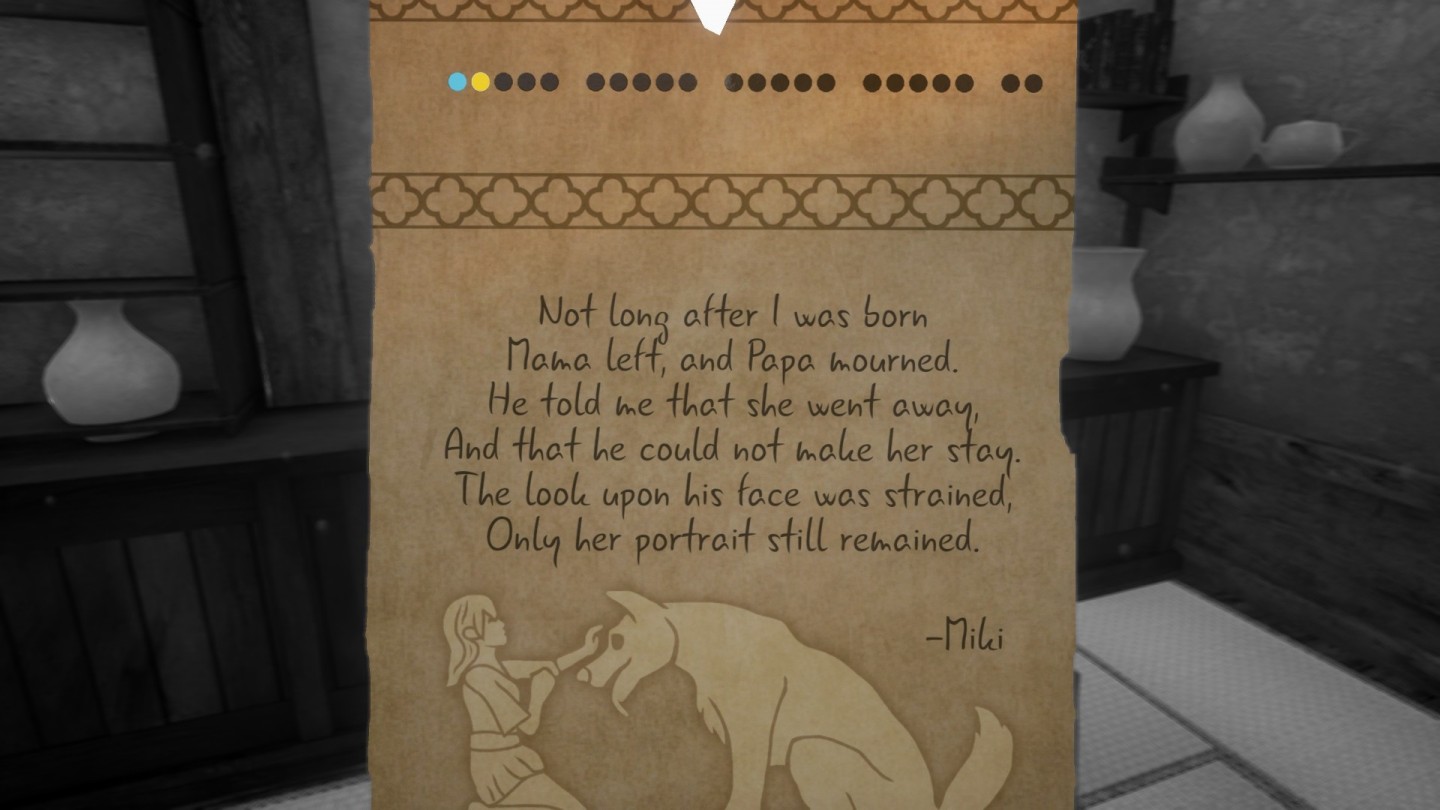 Not long after I was born
Mama left, and Papa mourned.
He told me that she went away,
And that he could not make her stay.
The look upon his face was strained,
Only her portrait still remained.
-Miki